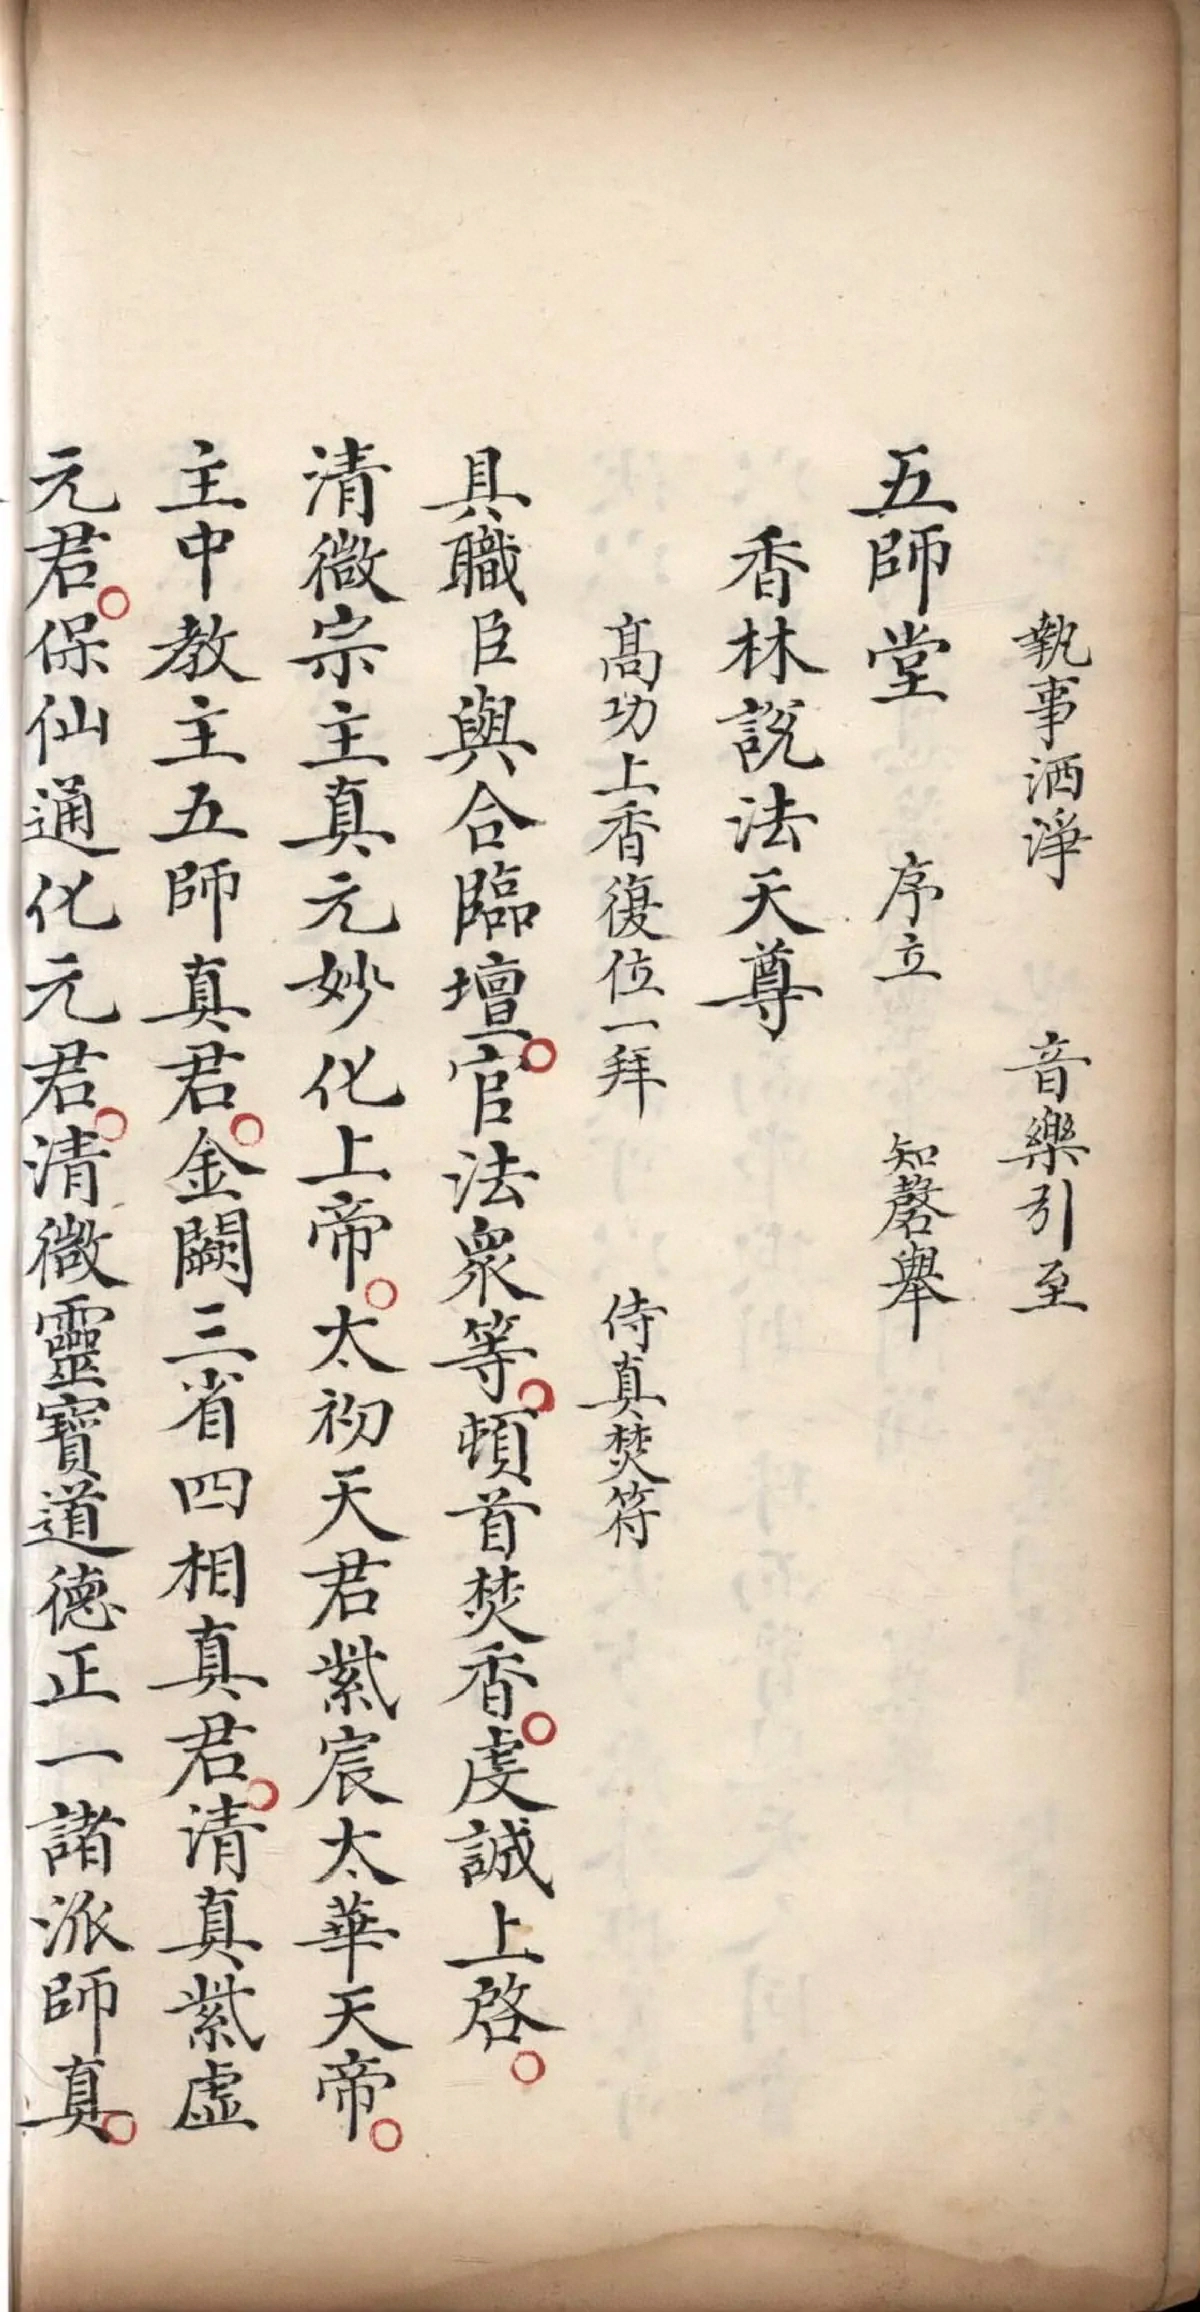 執事洒淨 音樂引至
五師堂 序立 知磬舉
香林說法天尊
高功上香復位一拜 侍真焚符
具職臣與合臨壇。官法衆等。頓首焚香。虔誠上啓。
清微宗主真元妙化上帝。太初天君紫宸太華天帝。
主中教主五師真君。金闕三省四相真君。清真紫虛
元君。保仙通化元君。清微靈寶道德正一諸派師真。